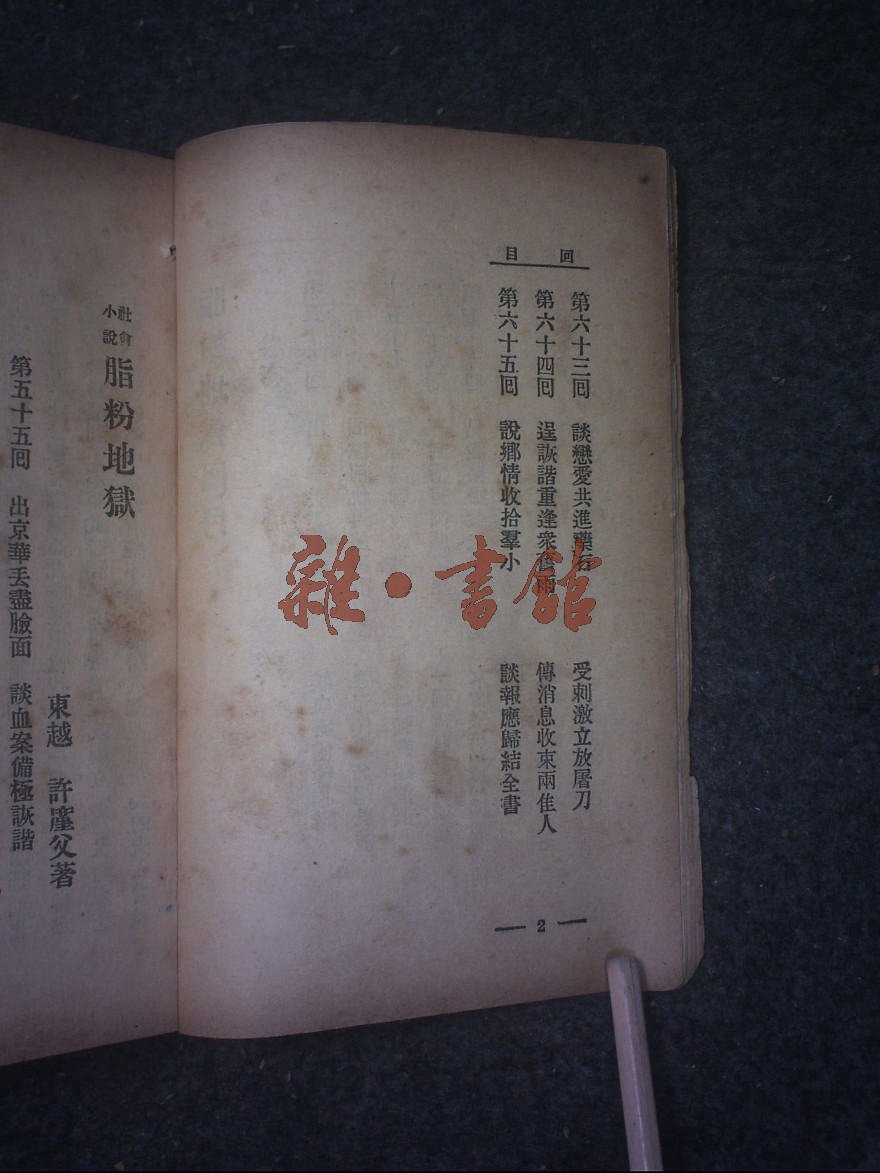 回目
第六十三回 談戀愛共進藥石 受刺激立放屠刀
第六十四回 逞詼諧重逢衆舊雨 傳消息收束兩佳人
第六十五回 說鄉情收拾羣小 談報應歸結全書
2
社會小說 脂粉地獄
東越 許廑父著
第五十五回 出京華丟盡臉面 談血案備極詼諧
雜·書館